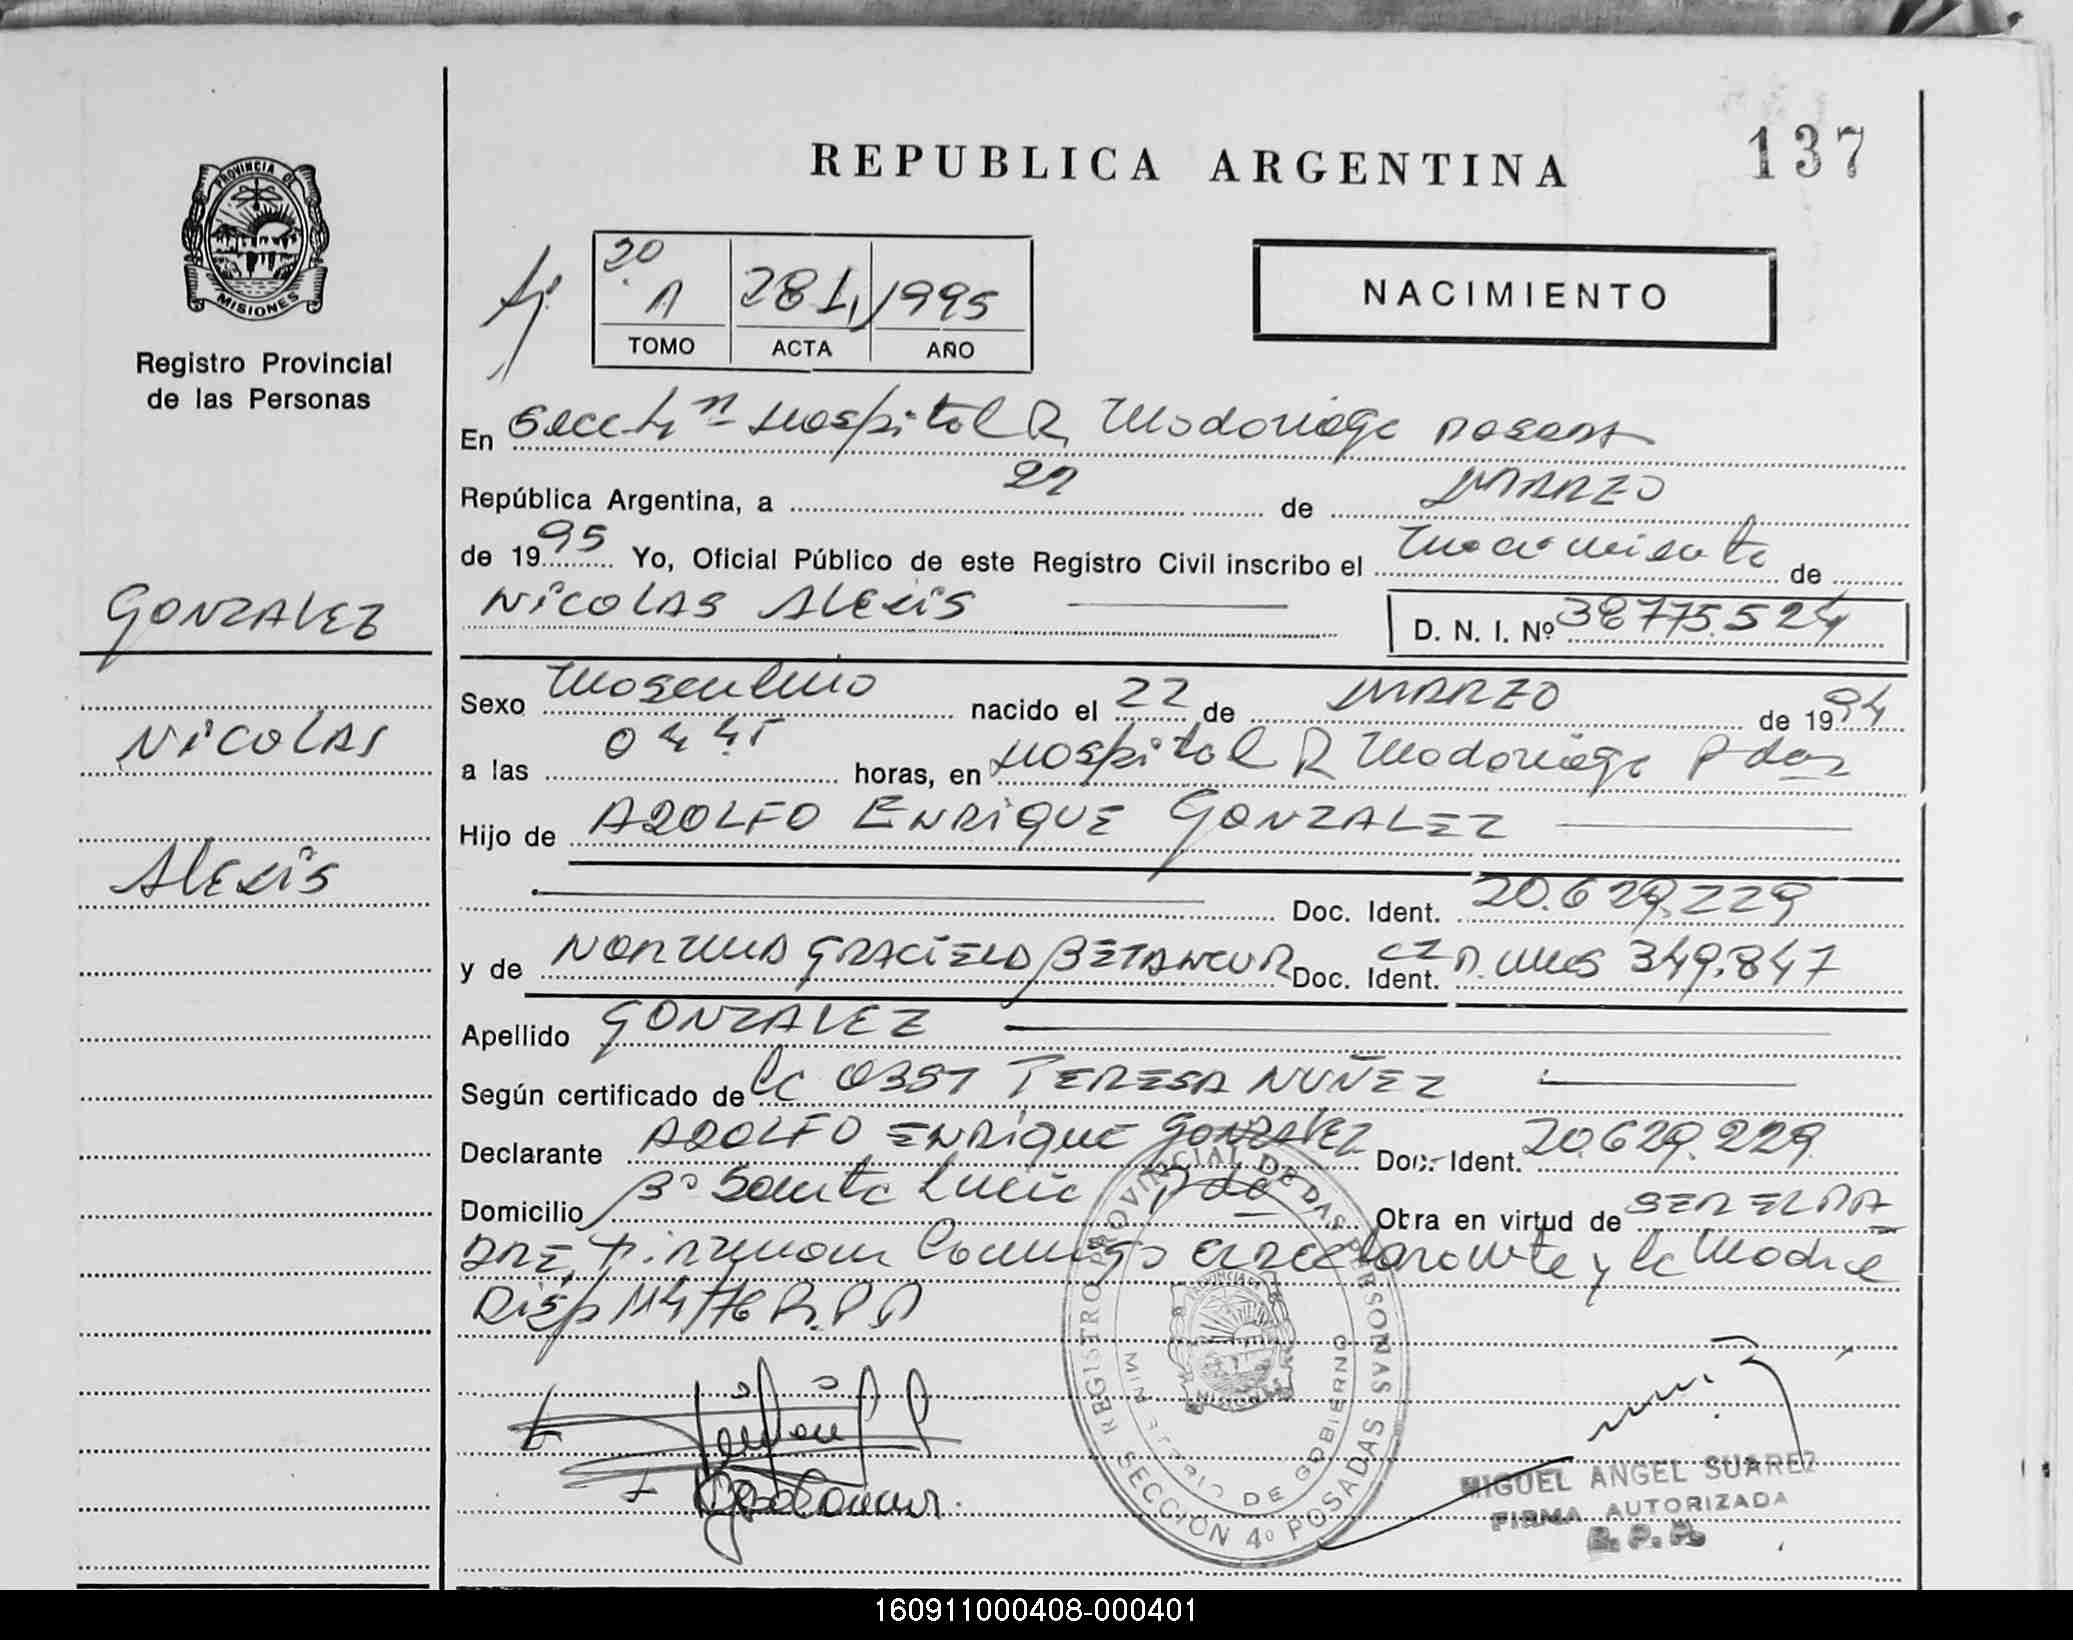 137
REPUBLICA ARGENTINA
PROVINCIA DE
MISIONES
Registro Provincial
de las Personas
20
A 281 1995
TOMO ACTA AÑO
NACIMIENTO
En Secc 4ª Hospital R Madariaga Posadas
República Argentina, a 22 de MARZO
de 1995 Yo, Oficial Público de este Registro Civil inscribo el nacimiento de
NICOLAS ALEXIS D. N. I. Nº 38775.524
GONZALEZ
NICOLAS
ALEXIS
Sexo masculino nacido el 22 de MARZO de 1994
a las 04 45 horas, en Hospital R Madariaga Pdas
Hijo de ADOLFO ENRIQUE GONZALEZ
Doc. Ident. 20.629.229
y de NORMA GRACIELA BETANCUR Doc. Ident. CI P. Mnes 349.847
Apellido GONZALEZ
Según certificado de la 0391 TERESA NUÑEZ
Declarante ADOLFO ENRIQUE GONZALEZ Doc. Ident. 20.629.229
Domicilio Bº Santa Lucia Pdas Obra en virtud de SER EL PA
DRE, firman conmigo el declarante y la madre
Disp 114/76 R.P.P
REGISTRO PROVINCIAL DE LAS PERSONAS
MINISTERIO DE GOBIERNO
SECCION 4º POSADAS
MIGUEL ANGEL SUAREZ
FIRMA AUTORIZADA
R. P. P.
160911000408-000401